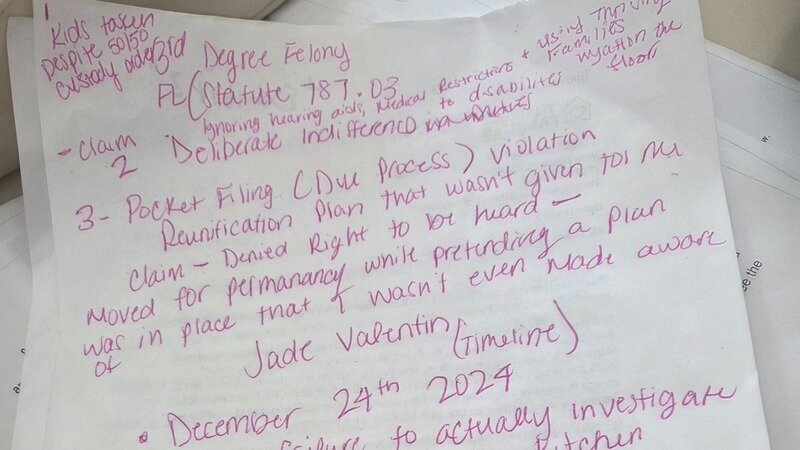 1
Kids taken
Despite 50/50
custody order
3rd Degree Felony
FL (Statute 787.03
Ignoring hearing aids, Medical Restrictions + using Thriving Families
- Claim 2 Deliberate Indifference to disabilities
floor
3- Pocket Filing (Due Process) Violation
Reunification Plan that wasn't given to me
Claim - Denied Right to be heard -
Moved for permanancy while pretending a plan
was in place that I wasn't even made aware
of
Jade Valentin (Timeline)
• December 24th 2024
failure to actually investigate
Kitchen
se the
w.